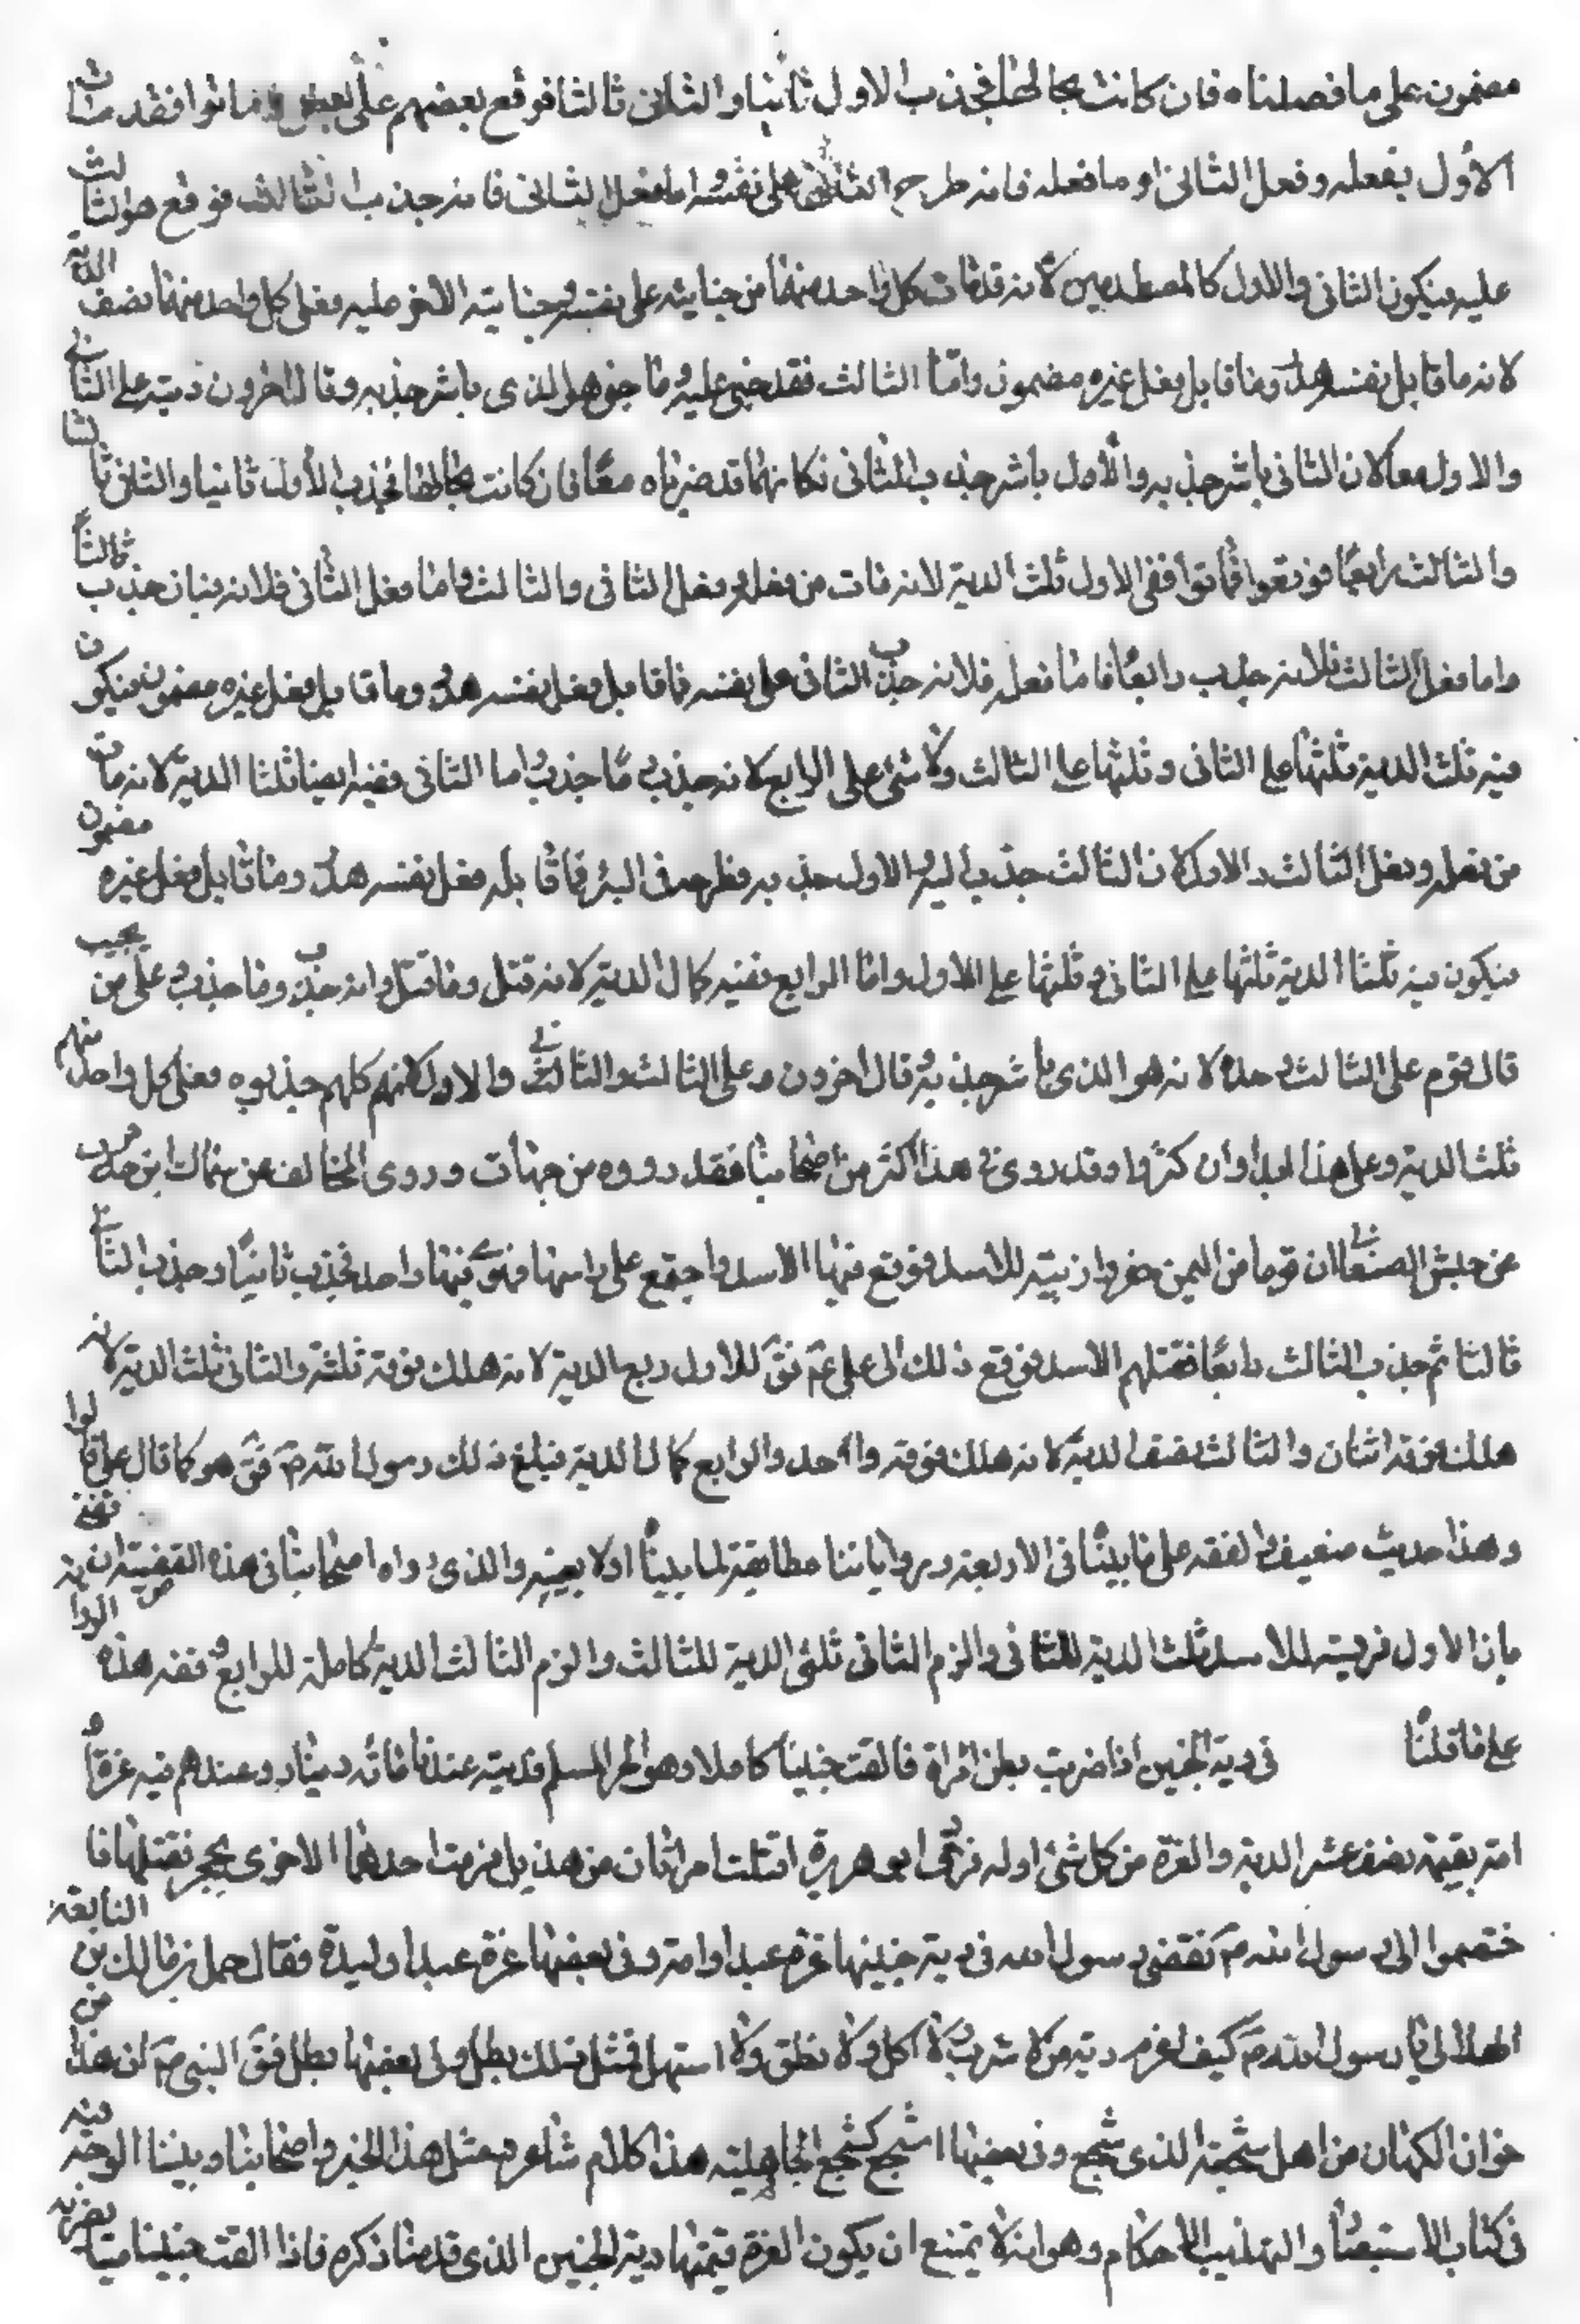 مضمون على ما فصلناه فان كانت بحالها فجذب الاول ثانيا والثانى ثالثا فوقع بعضهم على بعض وماتوا فقد مات
الاول بفعله وفعل الثانى اما فعله فانه طرح الثانى على نفسه اما فعل الثانى فانه جذب الثالث فوقع هو الثالث
عليه فيكون الثانى والاول كالمصطدمين لانه قد مات كل واحد منهما من جنايته على نفسه وجناية الاخر عليه فعلى كل واحد منهما نصف الدية
لانه ما قابل نفسه هدر وما قابل فعل غيره مضمون وامّا الثالث فقد جنى عليه وما جنى هو الذى باشر جذبه وقال اخرون ديته على الثانى
والاول معا لان الثانى باشر جذبه والاول باشر جذب الثانى فكانهما قد ضرباه معًا فان كانت بحالها فجذب الاول ثانيا والثانى ثالثا
والثالث رابعًا فوقعوا فماتوا ففى الاول ثلث الدية لانه مات من فعله وفعل الثانى والثالث واما فعل الثانى فلانه جذب ثالثاً
واما فعل الثالث فلانه جذب رابعًا فاما فعله فلانه جذب الثانى على نفسه فما قابل فعل نفسه هدر وما قابل فعل غيره مضمون فيكون
فيه ثلثا الدية ثلثها على الثانى وثلثها على الثالث ولا شئ على الرابع لانه جذب وما جذب اما الثانى ففيه ايضا ثلثا الدية لانه مات
من فعله وفعل الثالث والاول لان الثالث جذب اليه والاول جذبه فطرحه فى البئر فما قابله فعل نفسه هدر وما قابل فعل غيره مضمون
فيكون فيه ثلثا الدية ثلثها على الثانى وثلثها على الاول واما الرابع ففيه كمال الدية لانه قتل وما قتل وانه جذب وما جذب على من يجب
قال قوم على الثالث وحده لانه هو الذى باشر جذبه وقال اخرون على الثالث والثانى والاول لانهم كلهم جذبوه فعلى كل واحد منهم
ثلث الدية وعلى هذا ابدا وان كثروا وقد روى هذا اكثر من اصحابنا فقد رووه من جهات وروى المخالف عن سماك ابن حرب
عن حنش الصنعانى ان قوما من اليمن حفروا زبية للاسد فوقع فيها الاسد واجتمع على راسها فهوى فيها واحد فجذب ثانيًا وجذب الثانى
ثالثا ثم جذب الثالث رابعًا فقتلهم الاسد فرفع ذلك الى على عم فق للاول ربع الدية لانه هلك فوقه ثلثة والثانى ثلث الدية لانه
هلك فوقه اثنان والثالث نصف الدية لانه هلك فوقه واحد والرابع كمال الدية فبلغ ذلك رسول الله صم فق هو كما قال على قالوا
وهذا حديث ضعيف والفقه على ما بينا فى الاربعة ورواياتنا مطابقة لما بينا اولا بعينه والذى رواه اصحابنا فى هذه القضية
بان الاول فريسة للاسد ثلث الدية للثانى والزم الثانى ثلثى الدية للثالث والزم الثالث الدية كاملة للرابع وفقه هذه
على ما قلنا فى دية الجنين اذا ضرب بطن امراة فالقت جنينا كاملا وهو الحر المسلم فديته عندنا مائة دينار وعندهم فيه غرة او
امة بقيمة نصف عشر الدية والغرة من كل شئ اوله فروى ابو هريرة اقتتلت امراتان من هذيل فرمت احدهما الاخرى بحجر فقتلها فا
ختصموا الى رسول الله صم فقضى رسول الله فى دية جنينها غرة عبدا وامة وفى بعضها غرة عبد او وليدة فقال حمل بن مالك بن النابغة
الهذلى يا رسول الله صم كيف اغرم دية من لا شرب ولا اكل ولا نطق ولا استهل فمثل ذلك يطل وفى بعضها بطل فق النبى صم ان هذا من
اخوان الكهان من اهل سجعة الذى سجع وفى بعضها اسجع كسجع الجاهلية هذا كلام شاعر ومثل هذا الخبر رواه اصحابنا وبينا الوجه فيه
فى كتاب الاستبصار والتهذيب الاحكام وهو انه لا يمتنع ان يكون الغرة قيمتها دية الجنين الذى قدمنا ذكره فاذا القت جنينا ميتا بضربه